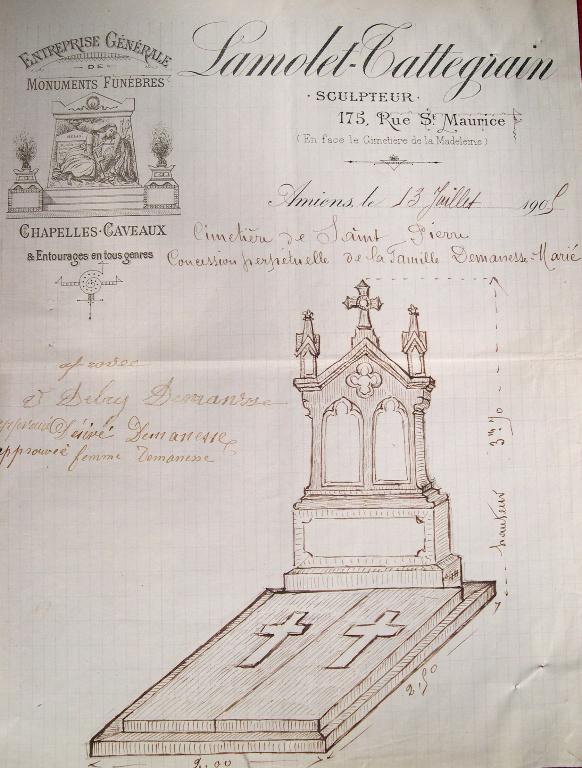 ENTREPRISE GÉNÉRALE
DE
MONUMENTS FUNÈBRES
CHAPELLES-CAVEAUX
& Entourages en tous genres
Lamolet-Tattegrain
SCULPTEUR
175, Rue St Maurice
(En face le Cimetière de la Madeleine)
Amiens, le 13 Juillet 1905
Cimetière de Saint Pierre
Concession perpetuelle de la famille Demanesse-Marié
Debry Demanesse
approuvé Désiré Demanesse
approuvée femme Demanesse
3m,70
hauteur
2,50
2,00